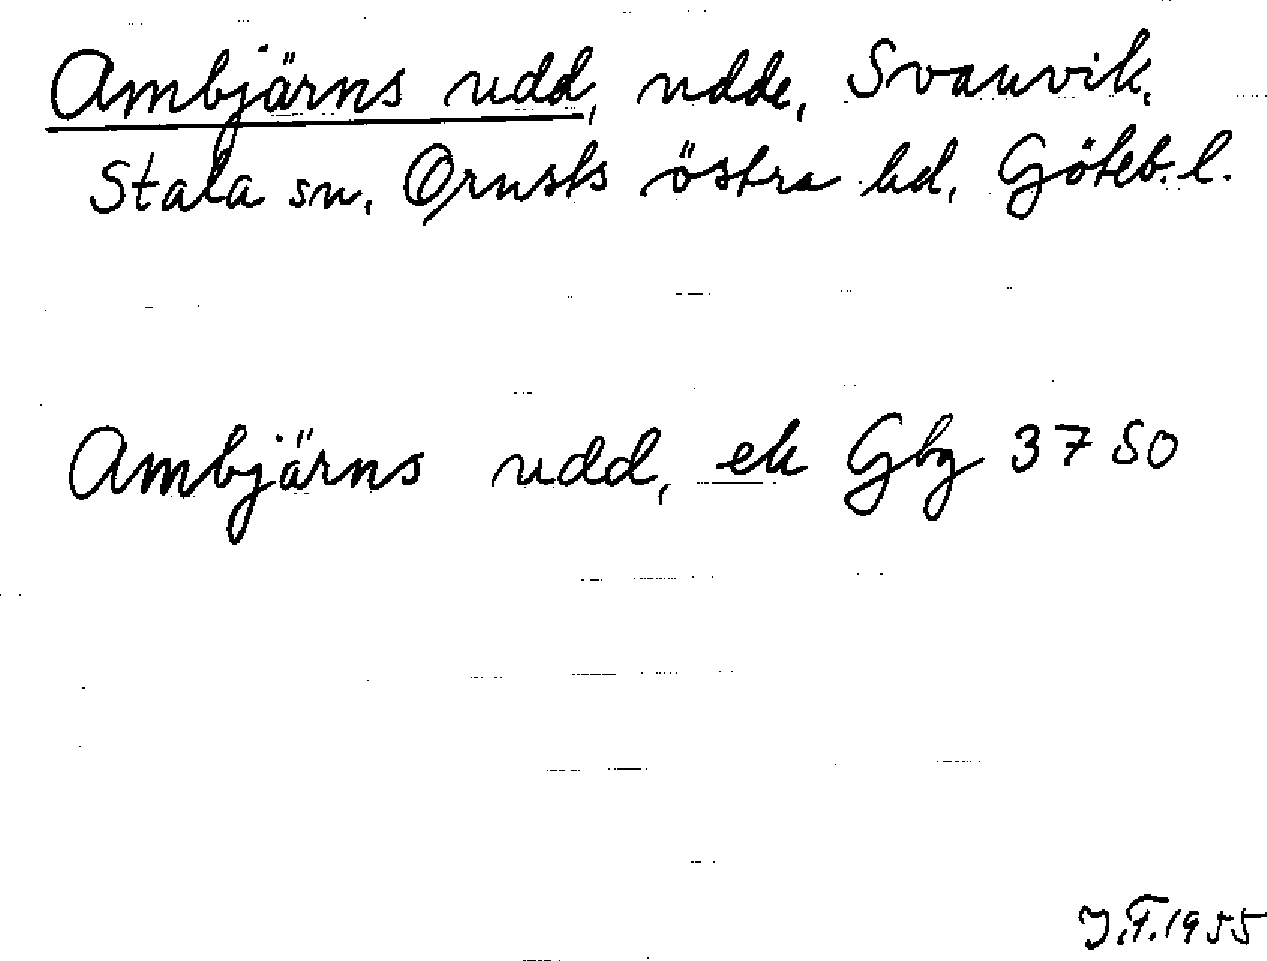 Ambjärns udd, udde, Svanvik,
Stala sn, Orusts östra hd, Göteb. l.
Ambjärns udd, ek Gbg 37 SO
J.F.1955